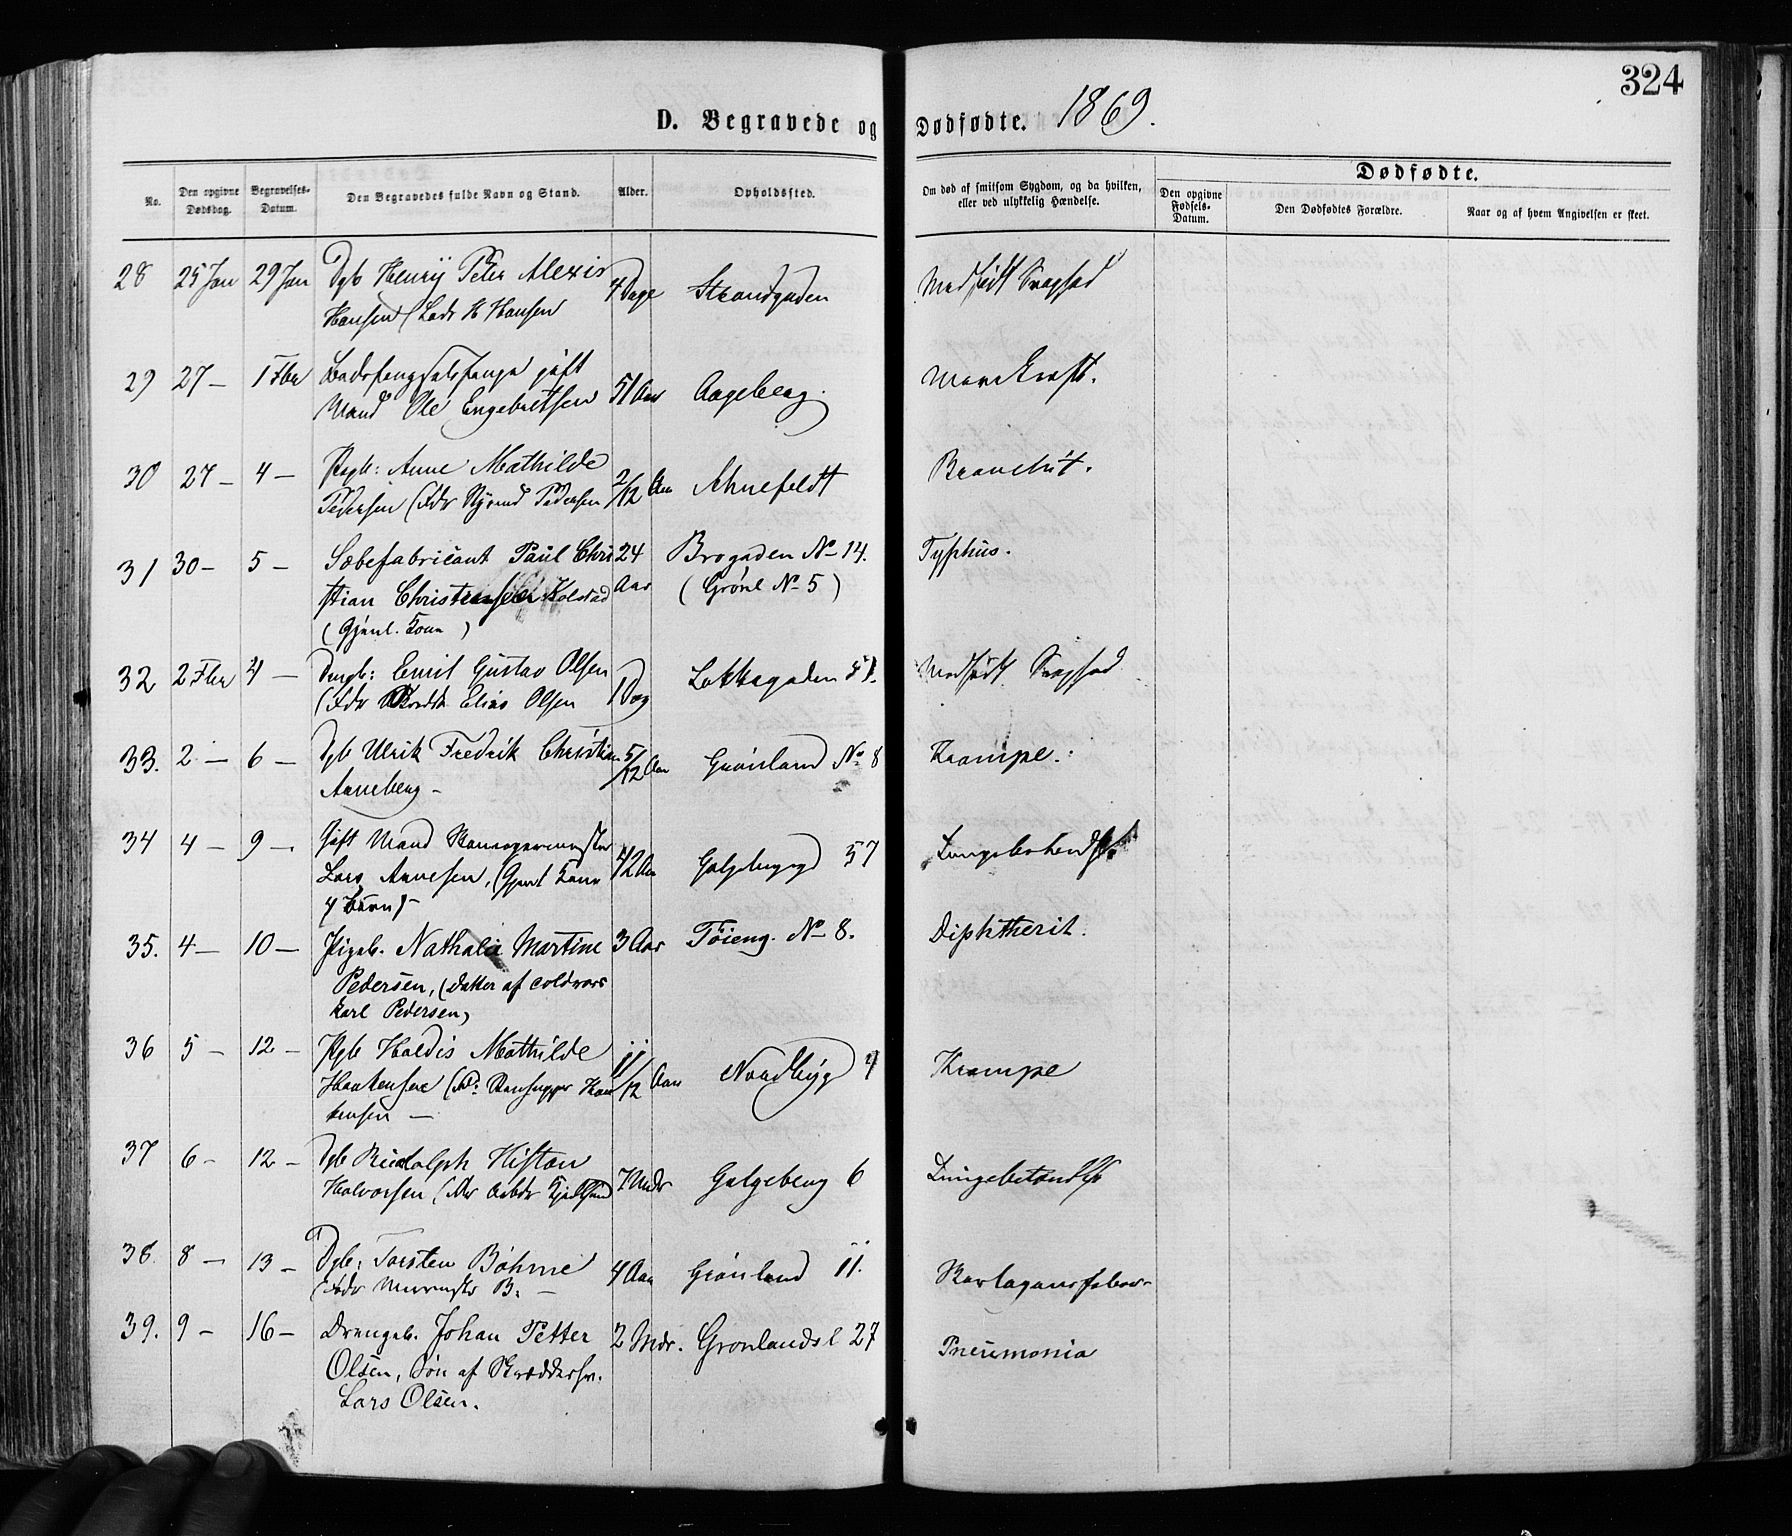 324
D. Begravede og Dødfødte. 1869.
No.
Den opgivne Dødsdag.
Begravelses-Datum.
Den Begravedes fulde Navn og Stand.
Alder.
Opholdssted.
Om død af smitsom Sygdom, og da hvilken,
eller ved ulykkelig Hændelse.
Dødfødte.
Den opgivne Fødsels-Datum.
Den Dødfødtes Forældre.
Naar og af hvem Angivelsen er skeet.
28 25 Jan 29 Jan Dgb Henry Peter Alexis 4 Dage Strandgaden Medfødt Svaghed
Hansen ( H Hansen
29 27 — 1 Fbr gift 51 Aar Aageberg.
Mand Ole Engebretsen
30 27 — 4 — Pigeb: Anne Mathilde 2/12 Aar Ahnefeldt
Pedersen (Fdr Pedersen
31 30 — 5 — Sæbefabricant Paul Chri 24 Brogaden No 14. Typhus.
stian Christensen Kolstad Aar (Grønl No 5)
(Gjenl. Kone)
32 2 Fbr 4 — Drngb: Emil Gustav Olsen 1 Dag Lakkegaden Medfødt Svaghed
(Fdr Elias Olsen
33. 2 — 6 — Dgb Ulrik Fredrik Christian 5/12 Aar Grønland No 8 Krampe.
Anneberg —
34 4 — 9 — Gift Mand 42 Aar Galgeberg 57
Lars (Gjenl Kone
4 Børn) —
35. 4 — 10 — Pigeb. Nathalie Martine 3 Aar Tøieng. No 8. Diphtherit.
Pedersen, (Datter af
Karl Pedersen)
36 5 — 12 — Pgb Haldis Mathilde 11/12 Aar Nordbyg 4 Krampe
Haakensen (Fdr: Haa
kensen —
37 6 — 12 — Dgb Rudolph Halvorsen 7 Mdr Galgeberg 6 Lungebetændelse
38. 8 — 13 — Dgb: Torsten Böhme 4 Aar Grønland 11. Skarlagensfeber
(Fdr Murmstr B: —
39. 9 — 16 — Drengeb. Johan Petter 2 Mdr. Grønlandsl 27 Pneumonia
Olsen, Søn af Skræddersv.
Lars Olsen.